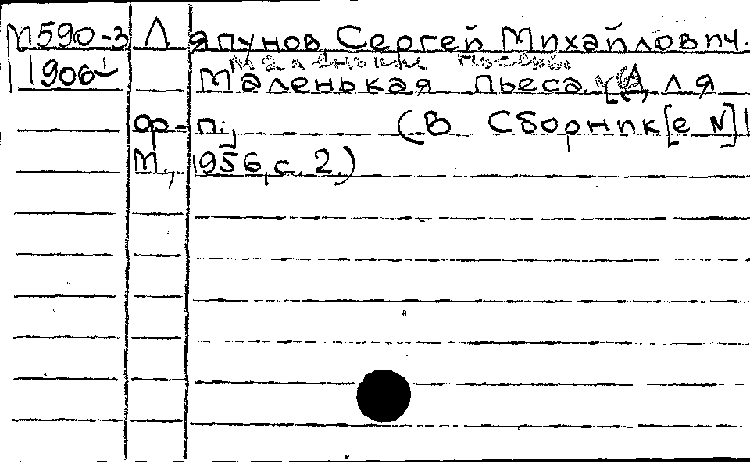 М590-3 Ляпунов, Сергей Михайлович.
1906
Маленькая пьеса для
ф-п., (В Сборник[е №]1
М., 1956, с. 2.)